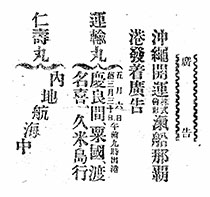 廣告
沖繩開運株式會社瀬船那覇
港發着廣告
運輸丸
五月六日午後九時出港
舊三月三十日
慶良間、粟國、渡
名喜、久米島行
仁壽丸
内地航海中